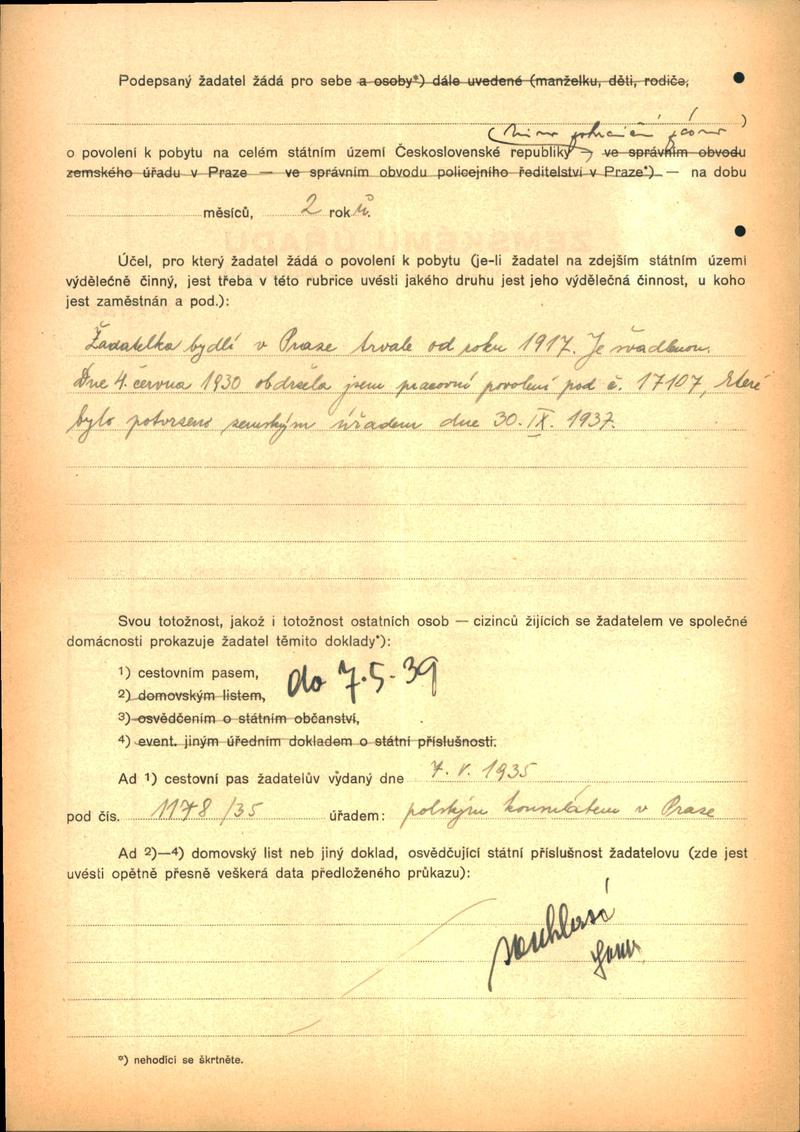 Podepsaný žadatel žádá pro sebe a osoby*) dále uvedené (manželku, děti, rodiče,
(mimo pohraniční pásmo)
o povolení k pobytu na celém státním území Československé republiky ve správním obvodu
zemského úřadu v Praze — ve správním obvodu policejního ředitelství v Praze*) — na dobu
měsíců, 2 roků.
Účel, pro který žadatel žádá o povolení k pobytu (je-li žadatel na zdejším státním území
výdělečně činný, jest třeba v této rubrice uvésti jakého druhu jest jeho výdělečná činnost, u koho
jest zaměstnán a pod.):
Žadatelka bydlí v Praze trvale od roku 1917. Je švadlenou.
Dne 4. června 1930 obdržela jsem pracovní povolení pod č. 17107, které
bylo potvrzeno zemským úřadem dne 30. IX. 1937.
Svou totožnost, jakož i totožnost ostatních osob — cizinců žijících se žadatelem ve společné
domácnosti prokazuje žadatel těmito doklady*):
1) cestovním pasem,
do 7.5.39
2) domovským listem,
3) osvědčením o státním občanství,
4) event. jiným úředním dokladem o státní příslušnosti.
Ad 1) cestovní pas žadatelův vydaný dne 7. V. 1935
pod čís. 1178/35 úřadem: polským konsulátem v Praze
Ad 2)—4) domovský list neb jiný doklad, osvědčující státní příslušnost žadatelovu (zde jest
uvésti opětně přesně veškerá data předloženého průkazu):
souhlasí
*) nehodící se škrtněte.